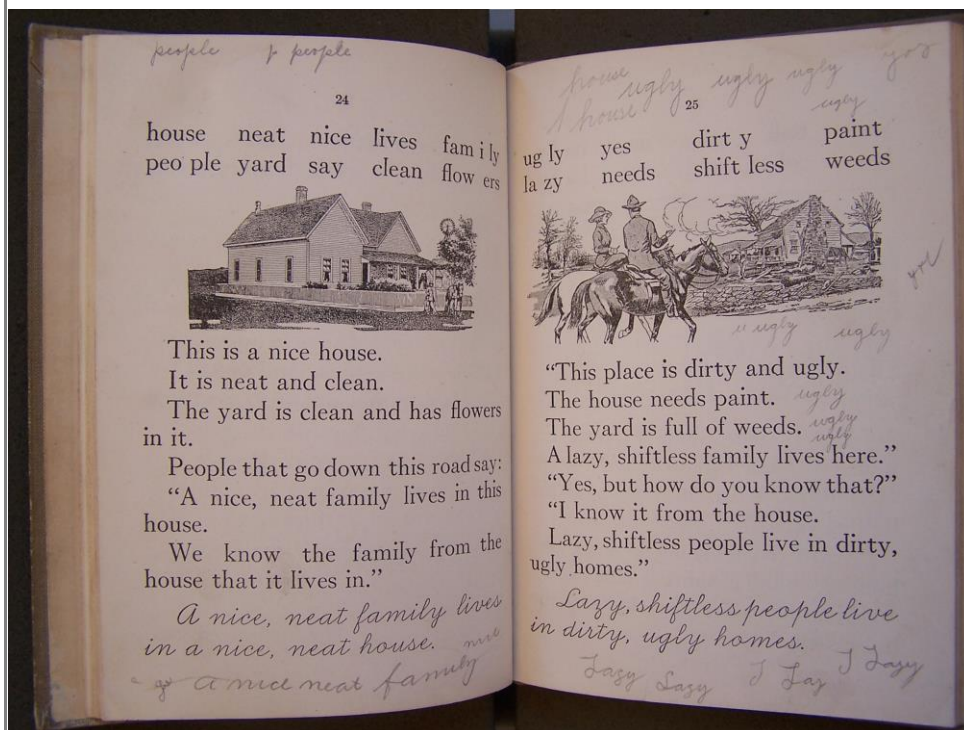 people people
24
house neat nice lives fam i ly
peo ple yard say clean flow ers
This is a nice house.
It is neat and clean.
The yard is clean and has flowers
in it.
People that go down this road say:
“A nice, neat family lives in this
house.
We know the family from the
house that it lives in.”
A nice, neat family lives
in a nice, neat house.
nice
a nice neat family
house ugly ugly ugly
house
25
ugly
ug ly yes dirt y paint
la zy needs shift less weeds
u ugly ugly
“This place is dirty and ugly.
The house needs paint. ugly
The yard is full of weeds. ugly
ugly
A lazy, shiftless family lives here.”
“Yes, but how do you know that?”
“I know it from the house.
Lazy, shiftless people live in dirty,
ugly homes.”
Lazy, shiftless people live
in dirty, ugly homes.
Lazy Lazy Laz Lazy